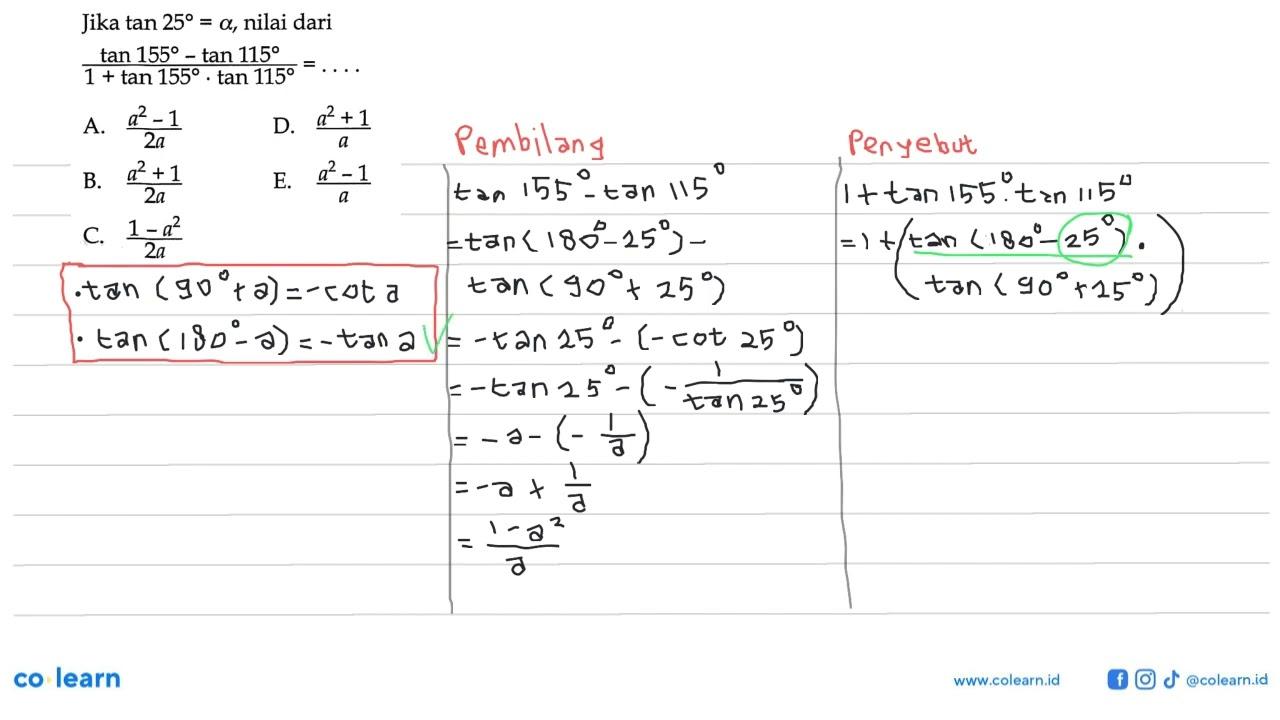 Jika tan 25° = α, nilai dari
tan 155° – tan 115°
1 + tan 155° · tan 115° = . . . .
A. a² – 1 / 2a D. a² + 1 / a
B. a² + 1 / 2a E. a² – 1 / a
C. 1 – a² / 2a
· tan (90° + a) = -cot a
· tan (180° - a) = -tan a √
Pembilang
tan 155° - tan 115°
= tan (180° - 25°) -
tan (90° + 25°)
= -tan 25° - (-cot 25°)
= -tan 25° - (- 1 / tan 25°)
= -a - (- 1 / a)
= -a + 1 / a
= 1 - a² / a
Penyebut
1 + tan 155° . tan 115°
= 1 + (tan (180° - 25°) .
tan (90° + 25°))
co learn
www.colearn.id
@colearn.id